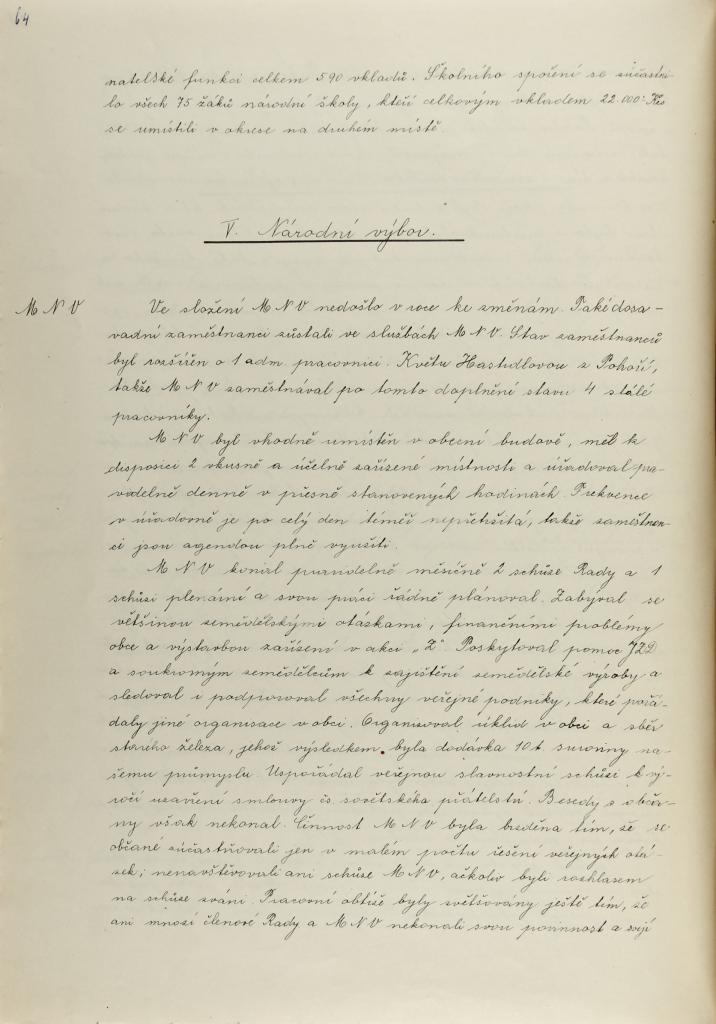 64
natelské funkci celkem 590 vkladů. Školního spoření se súčastni-
lo všech 75 žáků národní školy, kteří celkovým vkladem 22.000·Kčs
se umístili v okrese na druhém místě.
V. Národní výbor.
MNV
Ve složení MNV nedošlo v roce ke změnám. Také dosa-
vadní zaměstnanci zůstali ve službách MNV. Stav zaměstnanců
byl rozšířen o 1 adm. pracovnici. Květu Hastrdlovou z Pohoří,
takže MNV zaměstnával po tomto doplnění stavu 4 stálé
pracovníky.
MNV byl vhodně umístěn v obecní budově, měl k
disposici 2 vkusně a účelně zařízené místnosti a úřadoval pra-
videlně denně v přesně stanovených hodinách. Frekvence
v úřadovně je po celý den téměř nepřetržitá, takže zaměstnan-
ci jsou agendou plně využiti.
MNV konal pravidelně měsíčně 2 schůze Rady a 1
schůzi plenární a svou práci řádně plánoval. Zabýval se
většinou zemědělskými otázkami, finančními problémy
obce a výstavbou zařízení v akci „Z". Poskytoval pomoc JZD
a soukromým zemědělcům k zajištění zemědělské výroby a
sledoval i podporoval všechny veřejné podniky, které pořá-
daly jiné organisace v obci. Organisoval úklid v obci a sběr
starého železa, jehož výsledkem byla dodávka 10 t suroviny na-
šemu průmyslu. Uspořádal veřejnou slavnostní schůzi k vý-
ročí uzavření smlouvy čs. sovětského přátelství. Besedy s obča-
ny však nekonal. Činnost MNV byla brzděna tím, že se
občané súčastňovali jen v malém počtu řešení veřejných otá-
zek; nenavštěvovali ani schůze MNV, ačkoliv byli rozhlasem
na schůze zváni. Pracovní obtíže byly zvětšovány ještě tím, že
ani mnozí členové Rady a MNV nekonali svou povinnost a svojí